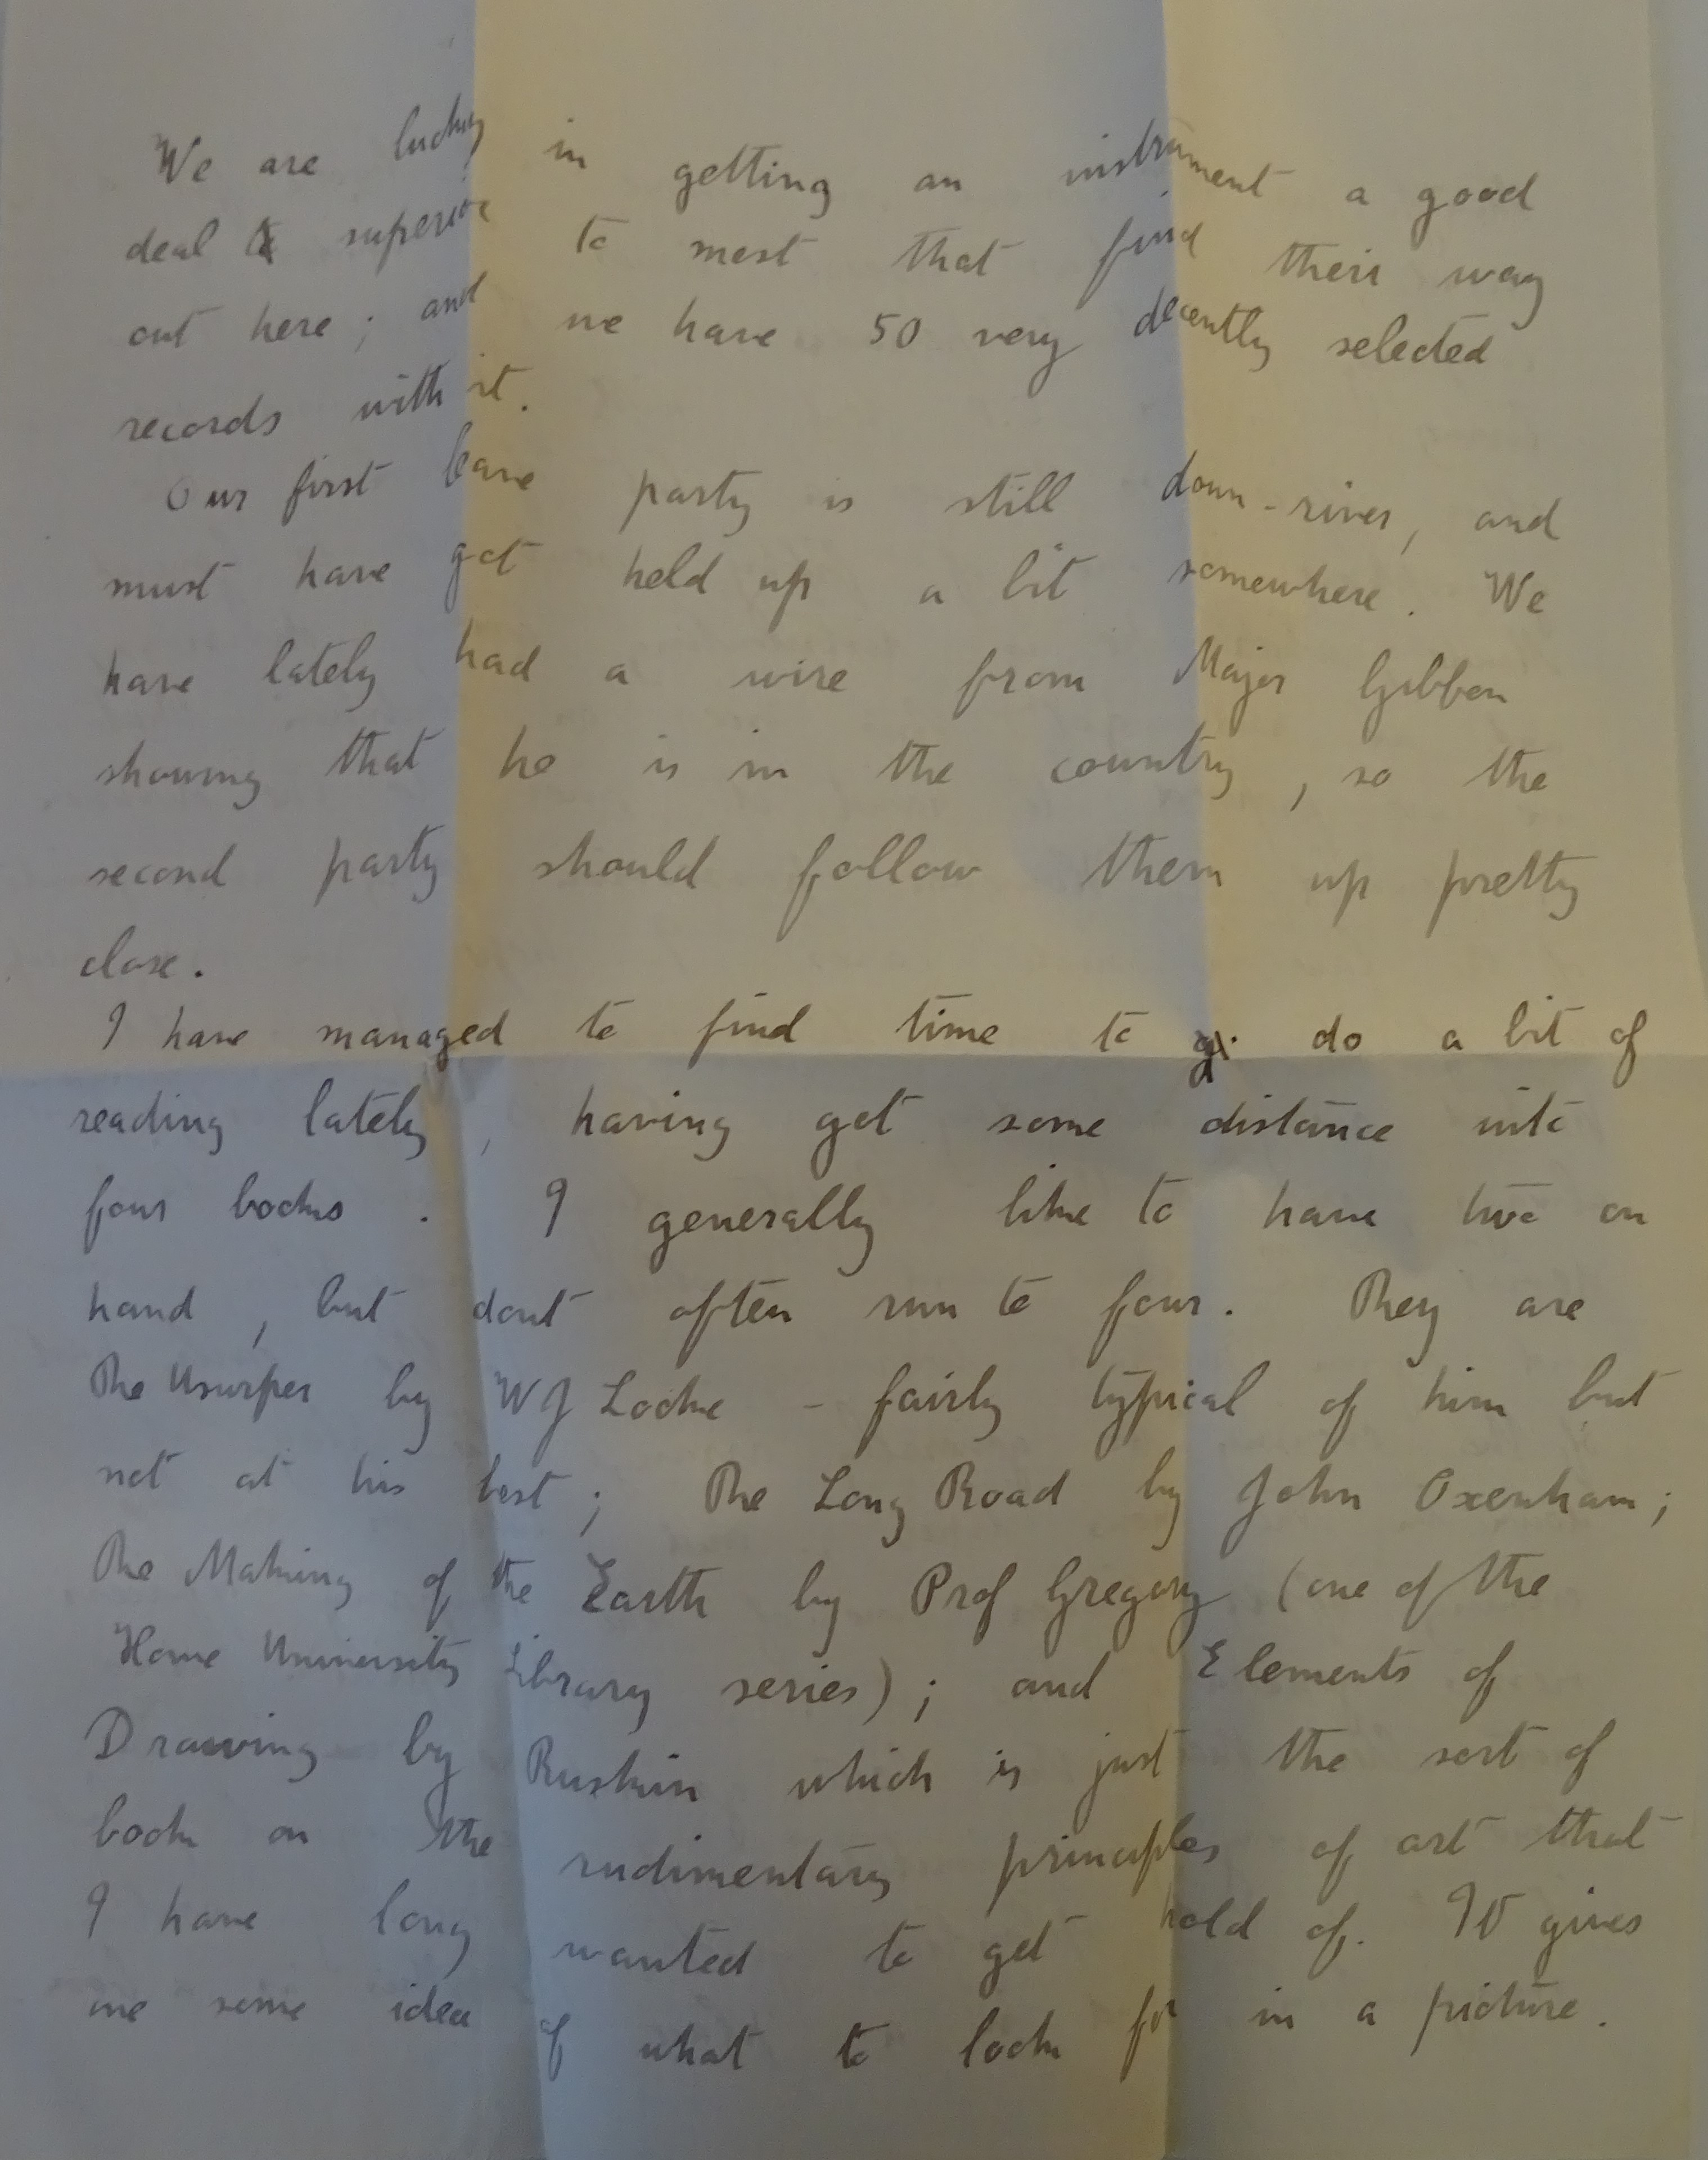 We are lucky in getting an instrument a good
deal superior to most that find their way
out here; and we have 50 very decently selected
records with it.
Our first leave party is still down-river, and
must have got held up a bit somewhere. We
have lately had a wire from Major Gibbon
showing that he is in the country, so the
second party should follow them up pretty
close.
I have managed to find time to do a bit of
reading lately, having got some distance into
four books. I generally like to have two on
hand, but dont often run to four. They are
The Usurper by W J Locke - fairly typical of him but
not at his best; The Long Road by John Oxenham;
The Making of the Earth by Prof Gregory (one of the
Home University Library series); and Elements of
Drawing by Ruskin which is just the sort of
book on the rudimentary principles of art that
I have long wanted to get hold of. It gives
one some idea of what to look for in a picture.